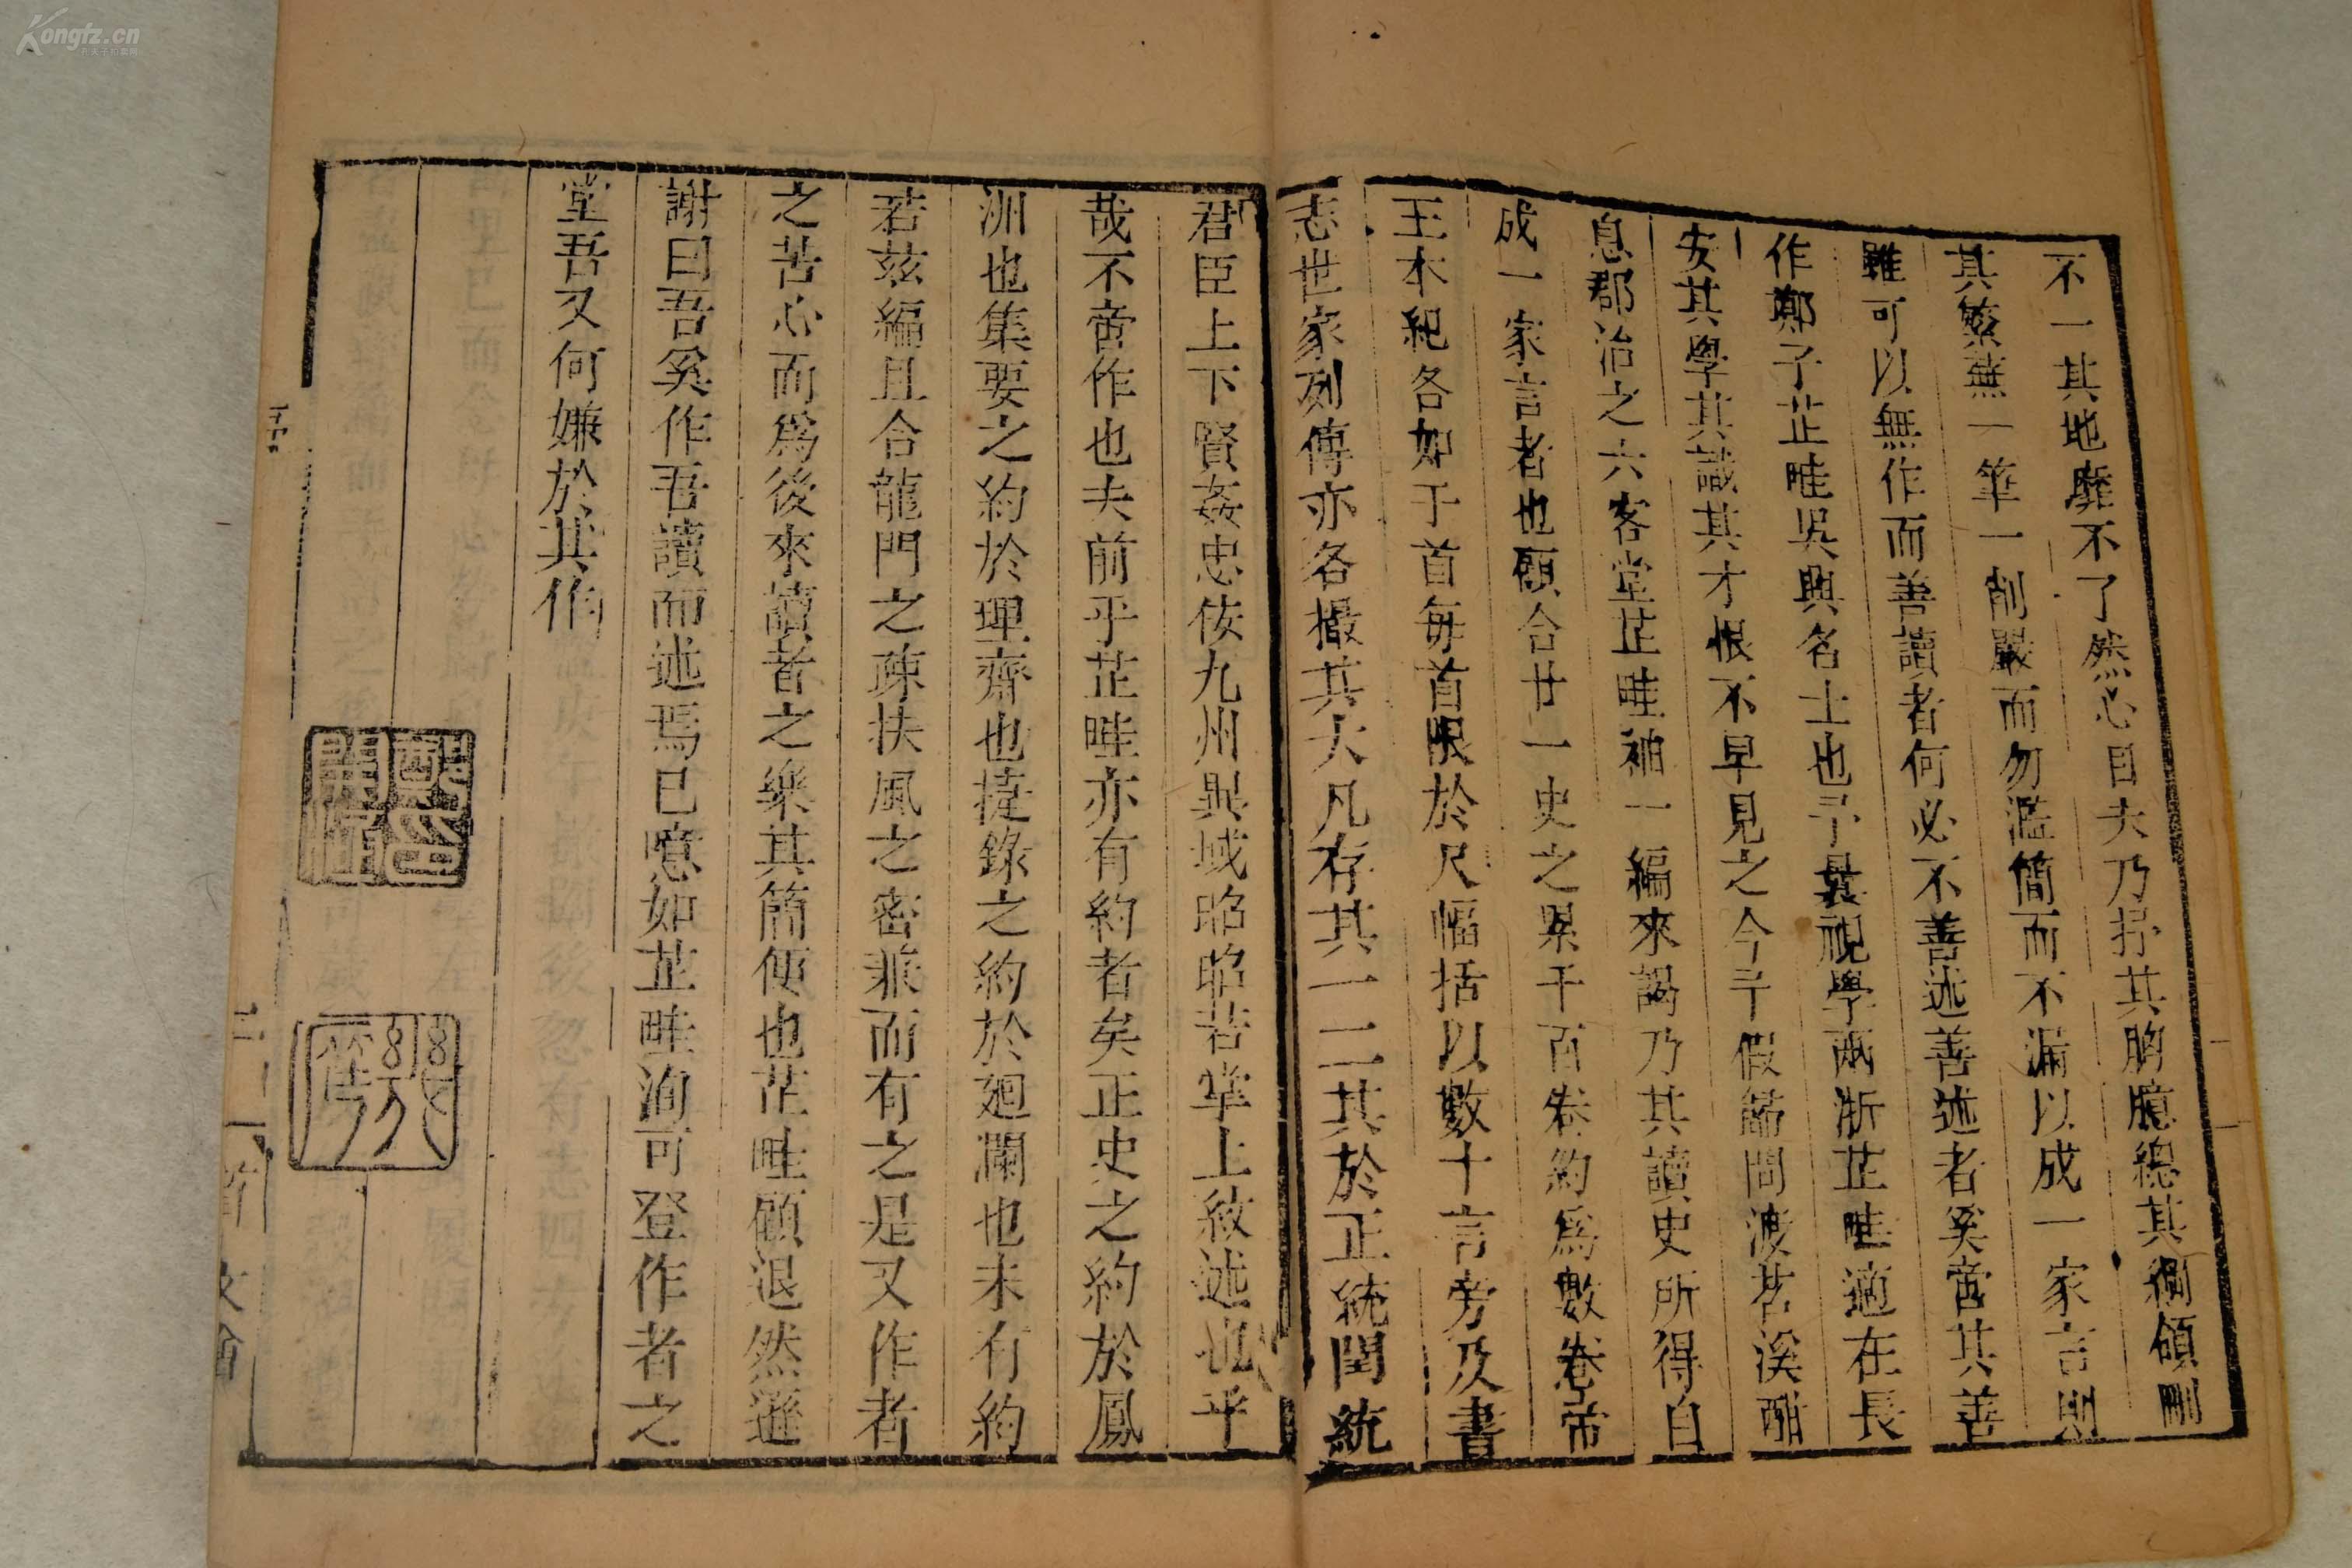 不一其地靡不了然心目夫乃抒其胸臆總其綱領剛
其繁蕪一筆一削嚴而勿濫簡而不漏以成一家言則
雖可以無作而善讀者何必不善述善述者奚啻其善
作鄭子芷畦吳興名士也予曩視學兩浙芷畦適在長
安其學其識其才恨不早見之今予假歸問渡苕溪酣
息郡治之六客堂芷畦袖一編來謁乃其讀史所得自
成一家言者也顧合廿一史之累千百卷約爲數卷帝
王本紀各如干首每首限於尺幅括以數十言旁及書
志世家列傳亦各撮其大凡存其一二其於正統閏統
君臣上下賢姦忠佞九州異域昭昭若掌上紋述也乎
哉不啻作也夫前乎芷畦亦有約者矣正史之約於鳳
洲也集要之約於理齋也捷錄之約於廻瀾也未有約
若茲編且合龍門之疎扶風之密兼而有之是又作者
之苦心而爲後來讀者之樂其簡便也芷畦顧退然遜
謝曰吾奚作吾讀而述焉已噫如芷畦洵可登作者之
堂吾又何嫌於其作
Kongfz.cn